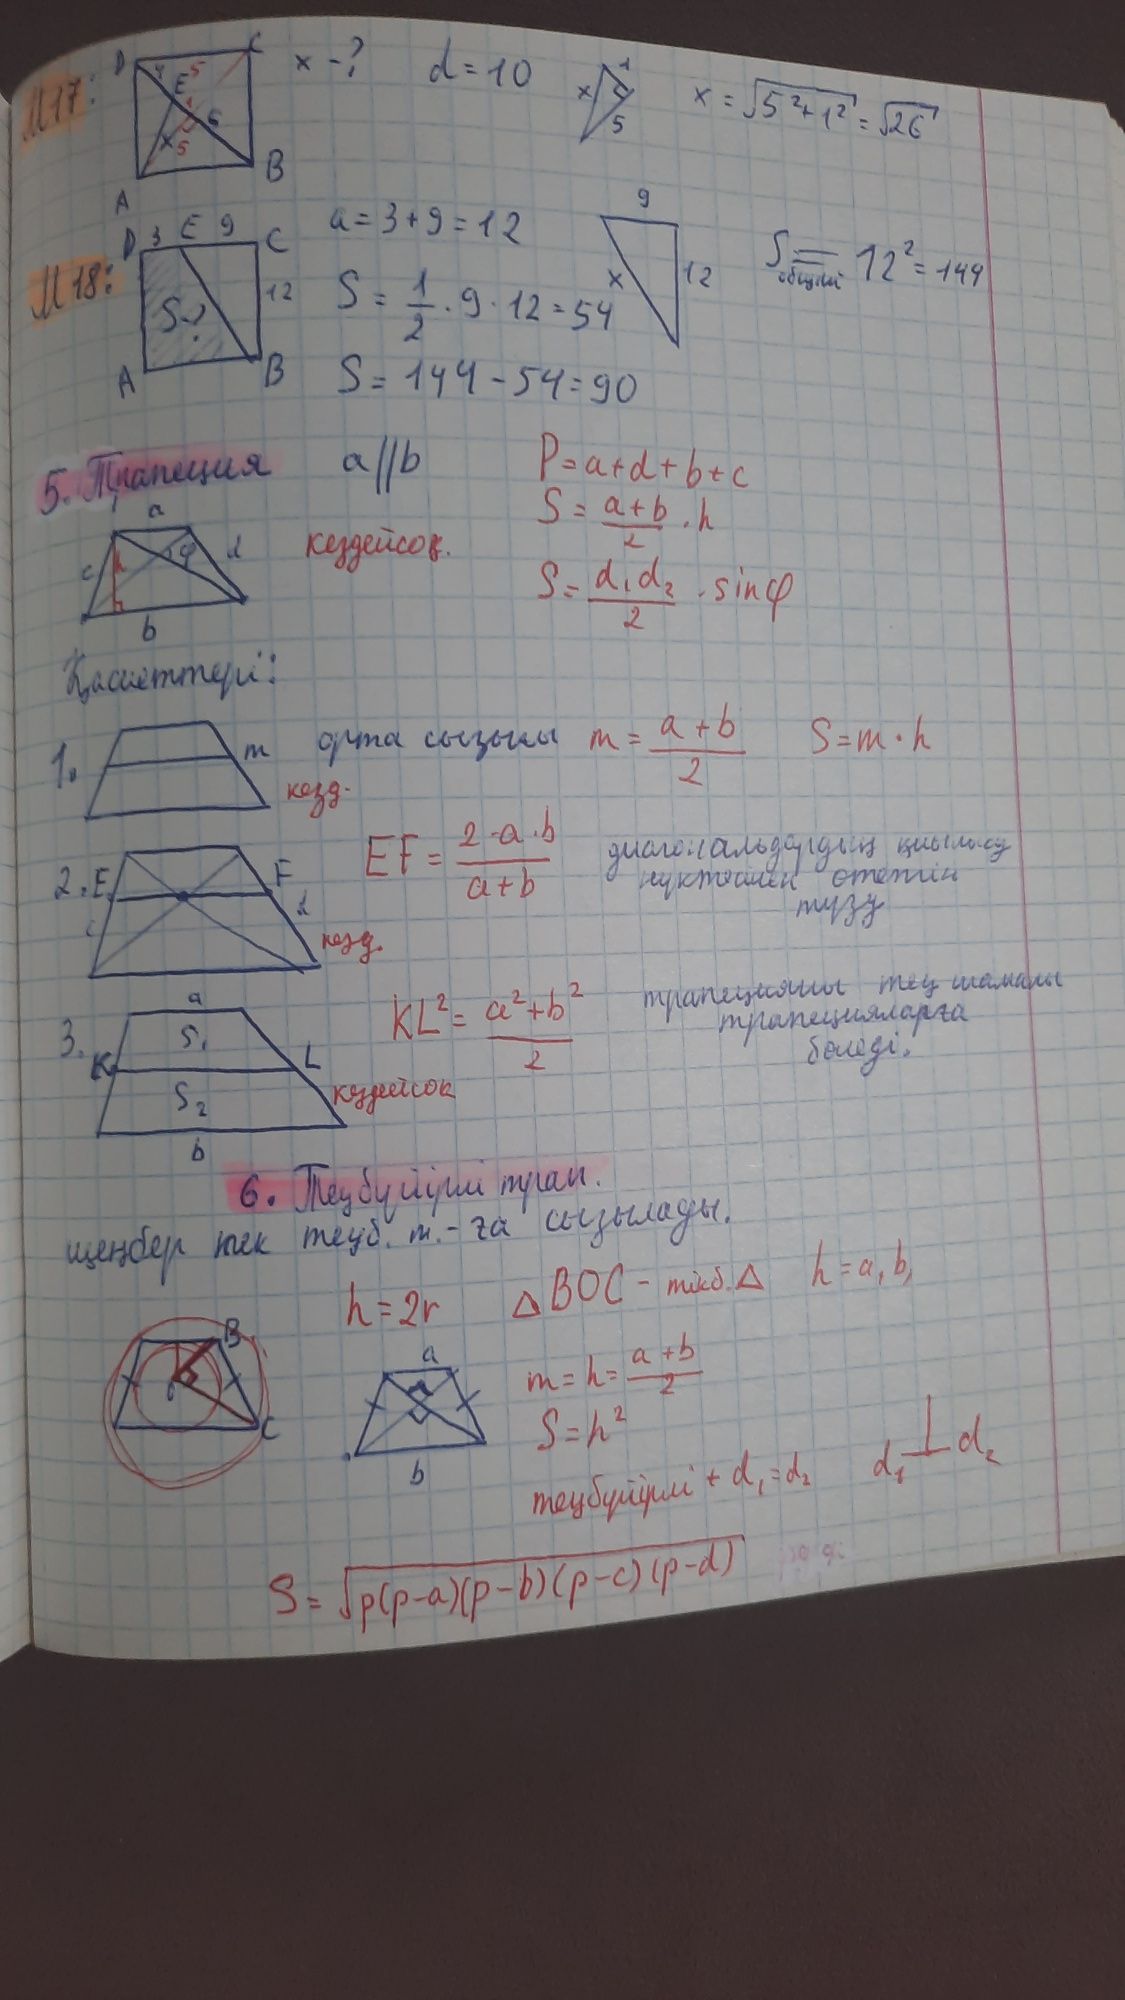 М17:
D C
4 E 5
1 6
x 5
A B
x - ?
d = 10
x 1 5
x = √5²+1² = √26
М18:
D 3 E 9 C
12
S-?
A B
a = 3+9 = 12
S = 1/2 · 9 · 12 = 54
S = 144 - 54 = 90
9
x 12
S общий = 12² = 144
5. Трапеция
a || b
P = a+d+b+c
S = a+b/2 · h
S = d₁d₂/2 · sinφ
a
c h φ d
b
кездейсоқ.
Қасиеттері:
1. m
кезд.
орта сызығы m = a+b/2 S = m·h
2. E F
c d
кезд.
EF = 2·a·b/a+b
диагональдардың қиылысу
нүктесінен өтетін
түзу
3. a
S₁
K L
S₂
b
кездейсоқ
KL² = a²+b²/2
трапецияны тең шамалы
трапецияларға
бөледі.
6. Теңбүйірлі трап.
шеңбер тек теңб. т.-ға сызылады.
h = 2r △BOC - тікб. △ h = a₁b₁
B
O
C
a
b
m = h = a+b/2
S = h²
теңбүйірлі + d₁ = d₂ d₁ ⊥ d₂
S = √p(p-a)(p-b)(p-c)(p-d)